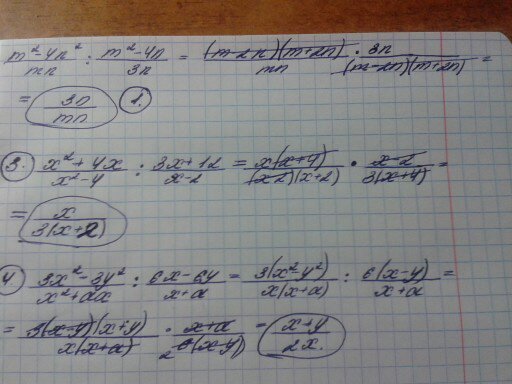 m² - 4n² / mn : m² - 4n / 3n = (m-2n)(m+2n) / mn · 3n / (m-2n)(m+2n) =
= 3n / mn 1.
3. x² + 4x / x² - 4 : 3x + 12 / x - 2 = x(x+4) / (x 2)(x+2) · x - 2 / 3(x+4) =
= x / 3(x+2)
4 3x² - 3y² / x² + ax : 6x - 6y / x + a = 3(x² - y²) / x(x+a) : 6(x-y) / x + a =
= 3(x-y)(x+y) / x(x+a) · x + a / 2 6(x-y) = x + y / 2x.